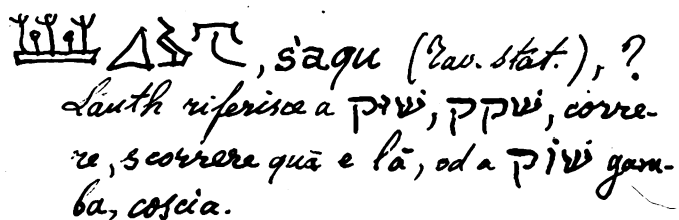 , śaqu (Tav. stat.), ?
Lauth riferisce a שׁוּק, שׁקק, corre-
re, scorrere quà e là, od a שׁוֹק gam-
ba, coscia.